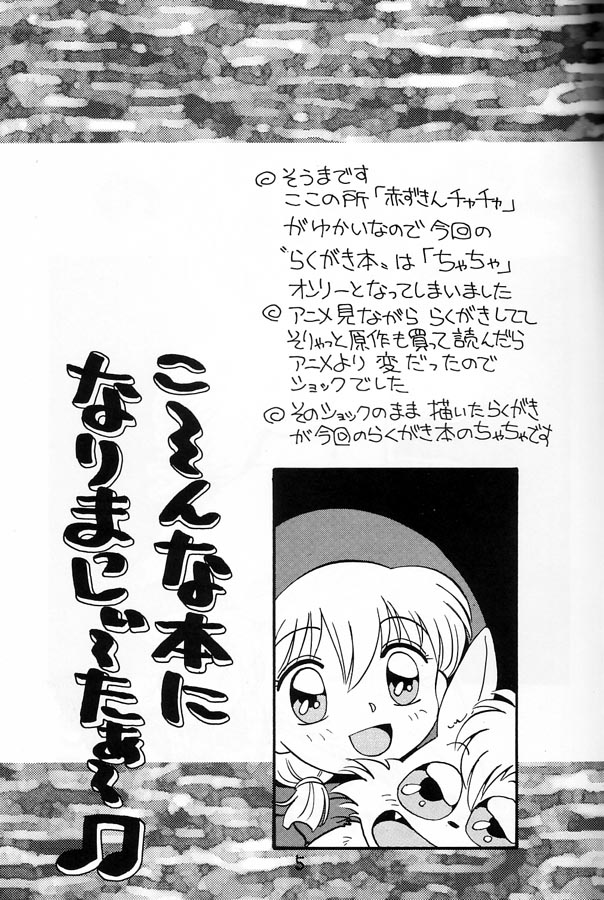 ◎そうまです
ここの所「赤ずきんチャチャ」
がゆかいなので今回の
〝らくがき本〟は「ちゃちゃ」
オンリーとなってしまいました
◎アニメ見ながら らくがきしてて
そりゃっと原作も買って読んだら
アニメより 変だったので
ショックでした
◎そのショックのまま 描いたらくがき
が今回のらくがき本のちゃちゃです
こ〜んな本に
なりまし〜たぁ〜♫
5